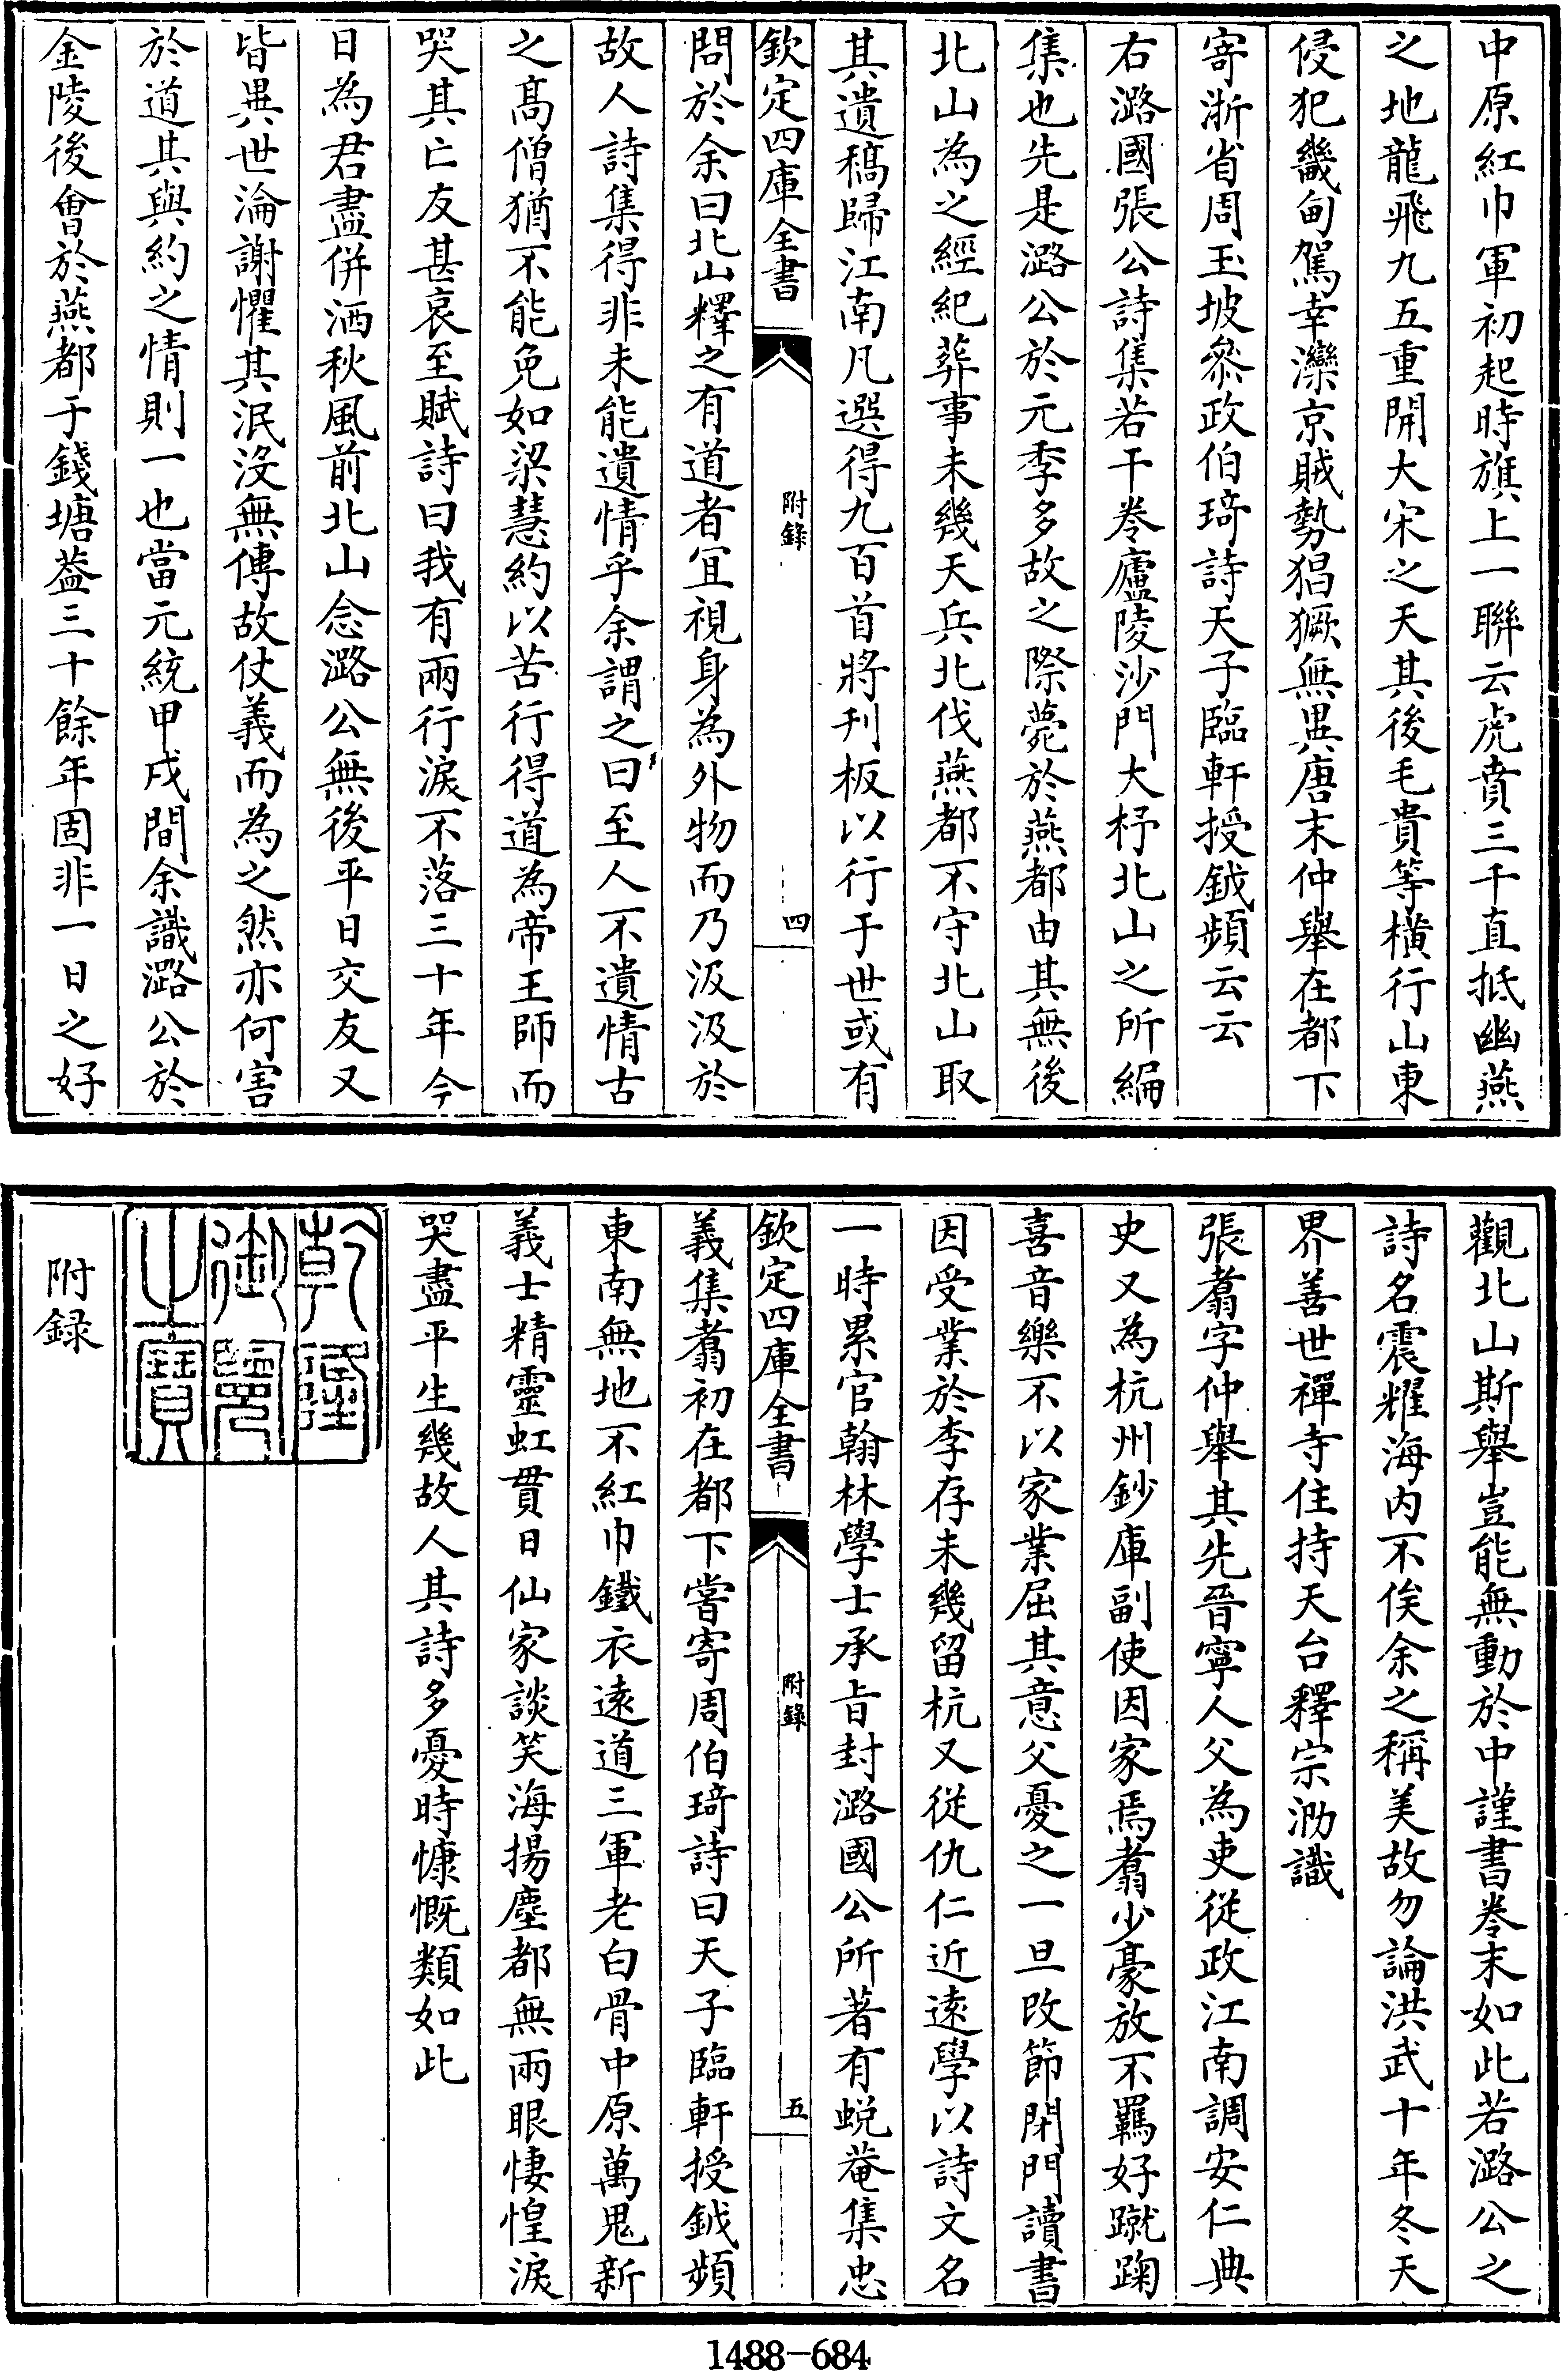 中原紅巾軍初起時旗上一聯云虎賁三千直抵幽燕
之地龍飛九五重開大宋之天其後毛貴等橫行山東
侵犯畿甸駕幸灤京賊勢猖獗無異唐末仲舉在都下
寄浙省周玉坡叅政伯琦詩天子臨軒授鉞頻云云
右潞國張公詩集若干卷廬陵沙門大杼北山之所編
集也先是潞公於元季多故之際薨於燕都由其無後
北山為之經紀葬事未幾天兵北伐燕都不守北山取
其遺稿歸江南凡選得九百首將刊板以行于世或有
欽定四庫全書
附錄
四
問於余曰北山釋之有道者宜視身為外物而乃汲汲於
故人詩集得非未能遺情乎余謂之曰至人不遺情古
之高僧猶不能免如梁慧約以苦行得道為帝王師而
哭其亡友甚哀至賦詩曰我有兩行淚不落三十年今
日為君盡併洒秋風前北山念潞公無後平日交友又
皆異世淪謝懼其泯沒無傳故仗義而為之然亦何害
於道其與約之情則一也當元統甲戌間余識潞公於
金陵後會於燕都于錢塘葢三十餘年固非一日之好
觀北山斯舉豈能無動於中謹書卷末如此若潞公之
詩名震耀海内不俟余之稱美故勿論洪武十年冬天
界善世禪寺住持天台釋宗泐識
張翥字仲舉其先晉寧人父為吏從政江南調安仁典
史又為杭州鈔庫副使因家焉翥少豪放不羈好蹴踘
喜音樂不以家業屈其意父憂之一旦改節閉門讀書
因受業於李存未幾留杭又從仇仁近遠學以詩文名
一時累官翰林學士承旨封潞國公所著有蛻菴集忠
欽定四庫全書
附錄
五
義集翥初在都下嘗寄周伯琦詩曰天子臨軒授鉞頻
東南無地不紅巾鐵衣遠道三軍老白骨中原萬鬼新
義士精靈虹貫日仙家談笑海揚塵都無兩眼悽惶淚
哭盡平生幾故人其詩多憂時慷慨類如此
乾隆
御覽
之寶
附録
1488-684